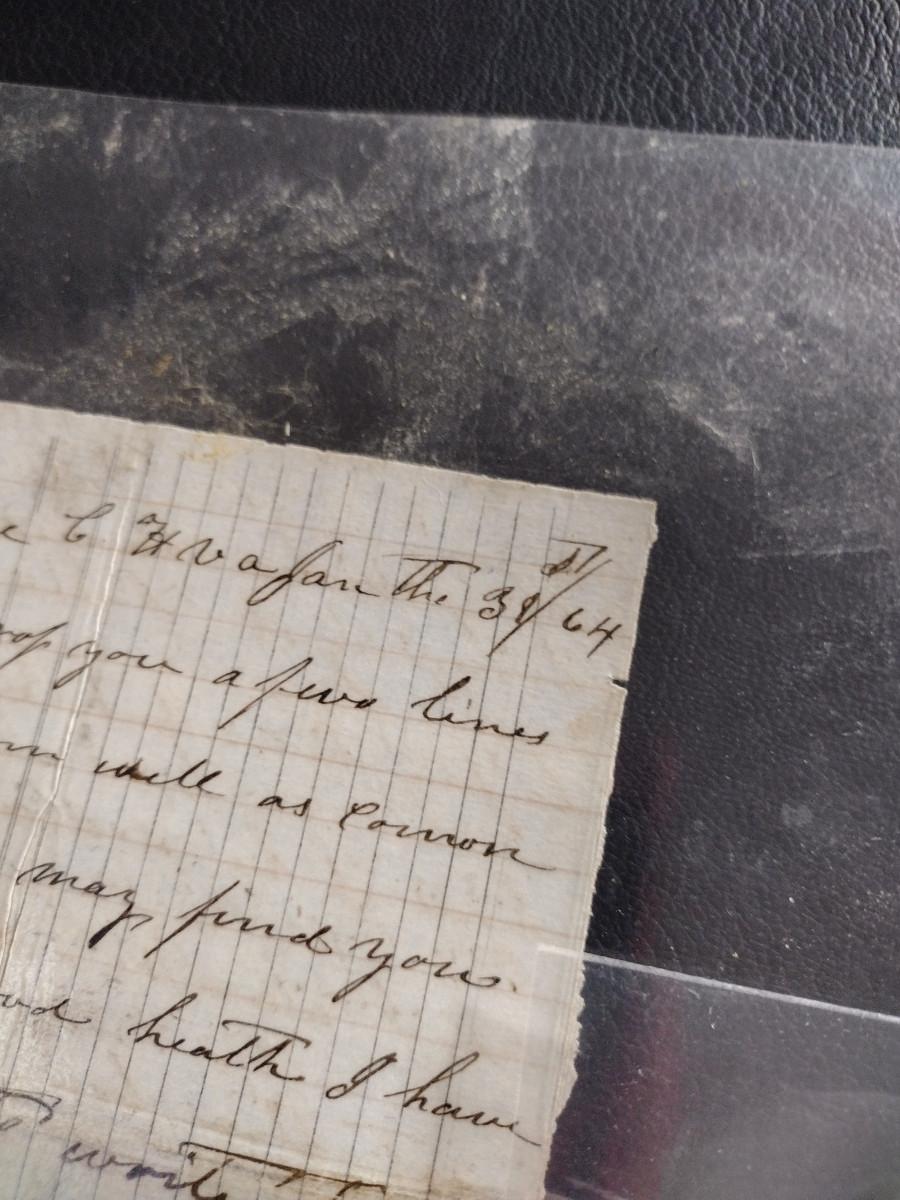 C H Va Jan the 31st/64
you a few lines
well as Comon
may find you
heath I have
write